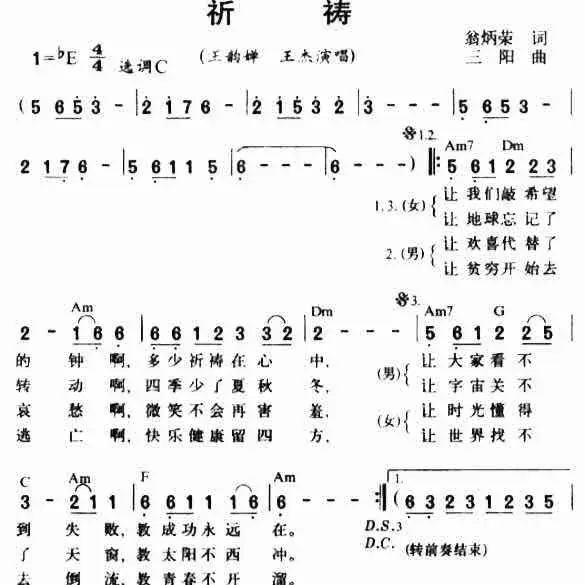 祈 祷
1=♭E 4/4 选调C (王韵婵 王杰演唱) 翁炳荣 词
三 阳 曲
(5 6 5 3 - | 2 1 7 6 - | 2 1 5 3 2 | 3 - - - | 5 6 5 3 -
1.2.
Am7 Dm
2 1 7 6 - | 5 6 1 1 5 | 6 - - - | 6 - - -) ‖: 5 6 1 2 2 3
1.3.(女) 让 我们敲 希望
让 地球忘 记了
2.(男) 让 欢喜代 替了
让 贫穷开 始去
Am Dm 3. Am7 G
2 - 1 6 6 | 6 6 1 2 3 3 2 | 2 - - - | 5 6 1 2 2 5
的 钟 啊, 多少祈祷在心 中, (男) 让 大家看 不
转 动 啊, 四季少了夏秋 冬, 让 宇宙关 不
哀 愁 啊, 微笑不会再害 羞, (女) 让 时光懂 得
逃 亡 啊, 快乐健康留四 方, 让 世界找 不
C Am F Am 1.
3 - 2 1 1 | 6 6 6 1 1 1 6 | 6 - - - :‖ (6 3 2 3 1 2 3 5
到 失 败, 教成功永远 在。 D.S.3
了 天 窗, 教太阳不西 冲。 D.C. (转前奏结束)
去 倒 流, 教青春不开 溜。